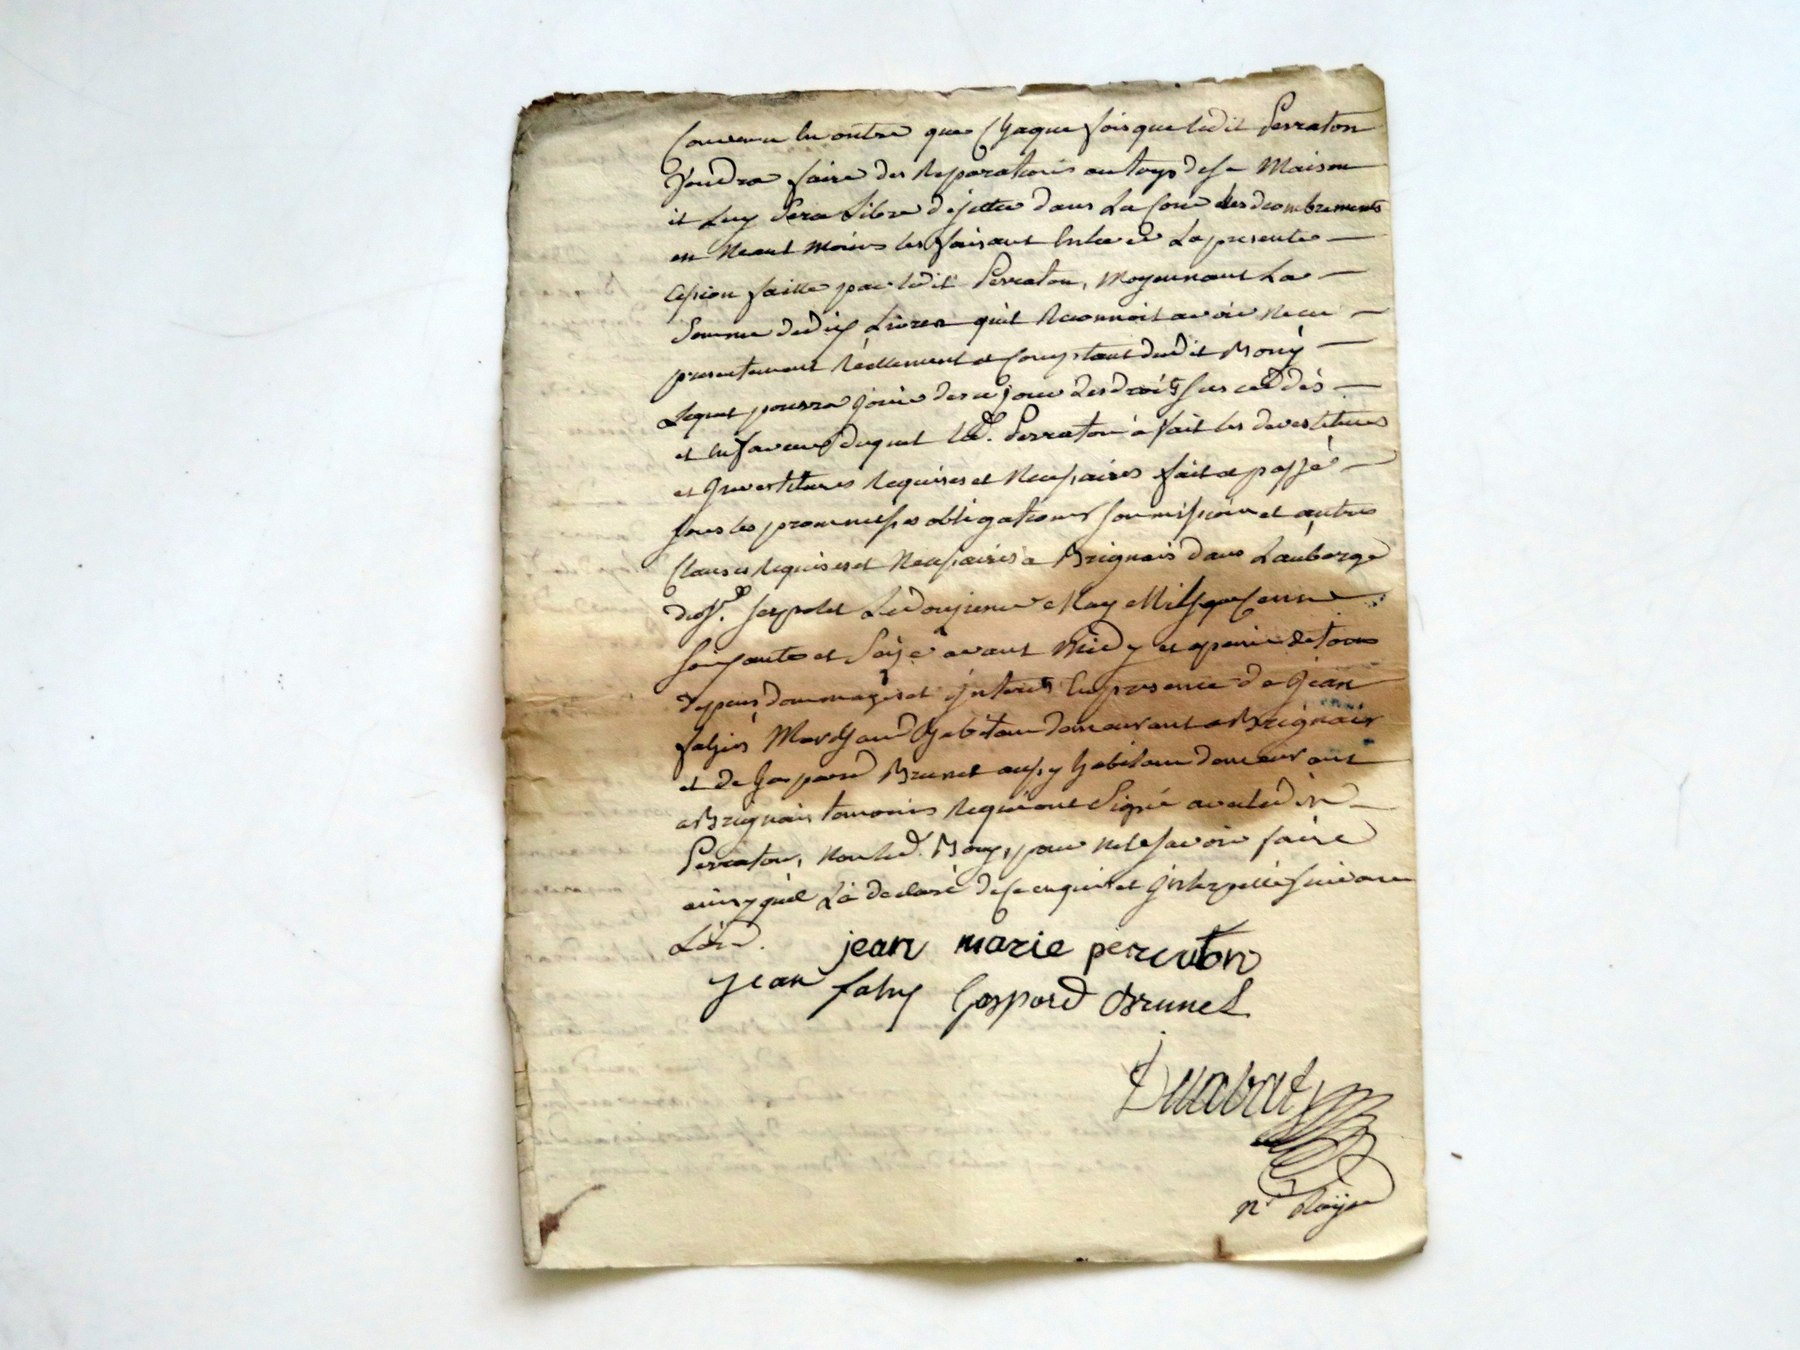 Convenu en outre que Chaque fois que ledit Perraton
Voudra faire des Reparations au toys de sa Maison
il Luy Sera Libre de jetter dans La Cour les decombrements
en Neant moins les faisant Enlever La presente
Cession faitte par ledit Perraton, Moyennant La
Somme de dix Livres quil Reconnoit avoir Receu
presentement Réellement et Comptant dudit Bony
Lequel pourra jouir de ce jour des droits sus cedés
et en faveur duquel led. Perraton à fait les devestitures
et Jnvestitures Requises et Necessaires fait et passé
sous les promesses obligations soumissions et autres
Clauses Requises et Necessaires a Brignais dans L'auberge
de Sr. Le Douzieme May Mil sept Cent
soixante et Seize avant Midy et a peine de tous
depens dommages et jnterets En presence de jean
Marchand habitant demeurant a Brignais
et de Gaspard Brunet aussy habitant demeurant
a Brignais temoins Requis ont Signé avec ledit
Perraton, Non led. Bony, pour ne le savoir faire
ainsy quil La declaré de ce enquis et jnterpellé suivant
Lord.
jean marie perraton
jean Gaspard Brunet
Nre Royal